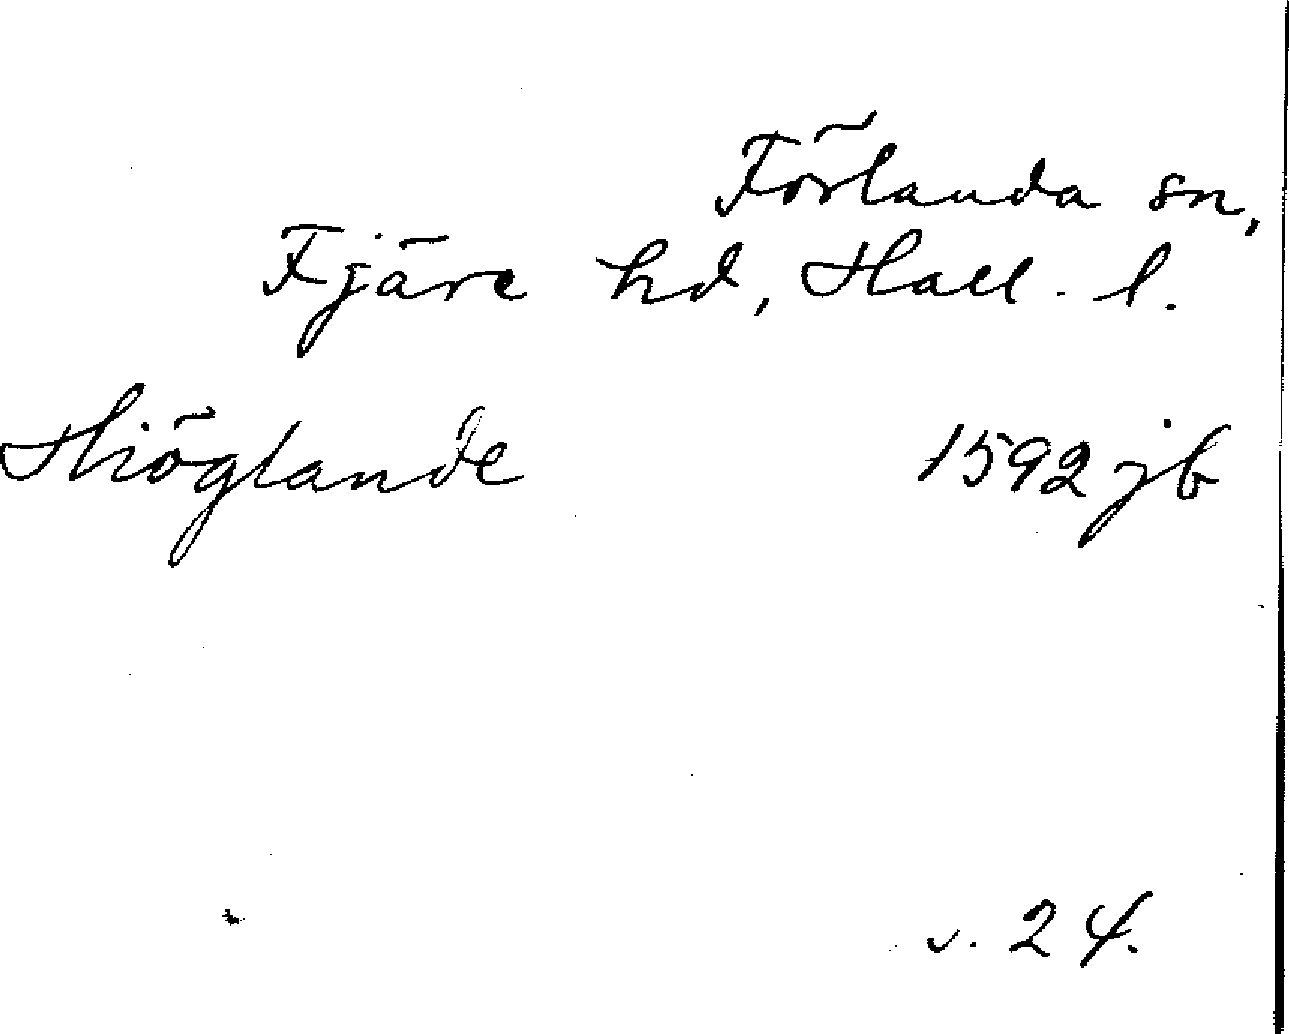 Förlanda sn,
Fjäre hd, Hall. l.
Hiöglande 1592 jb
v. 24.